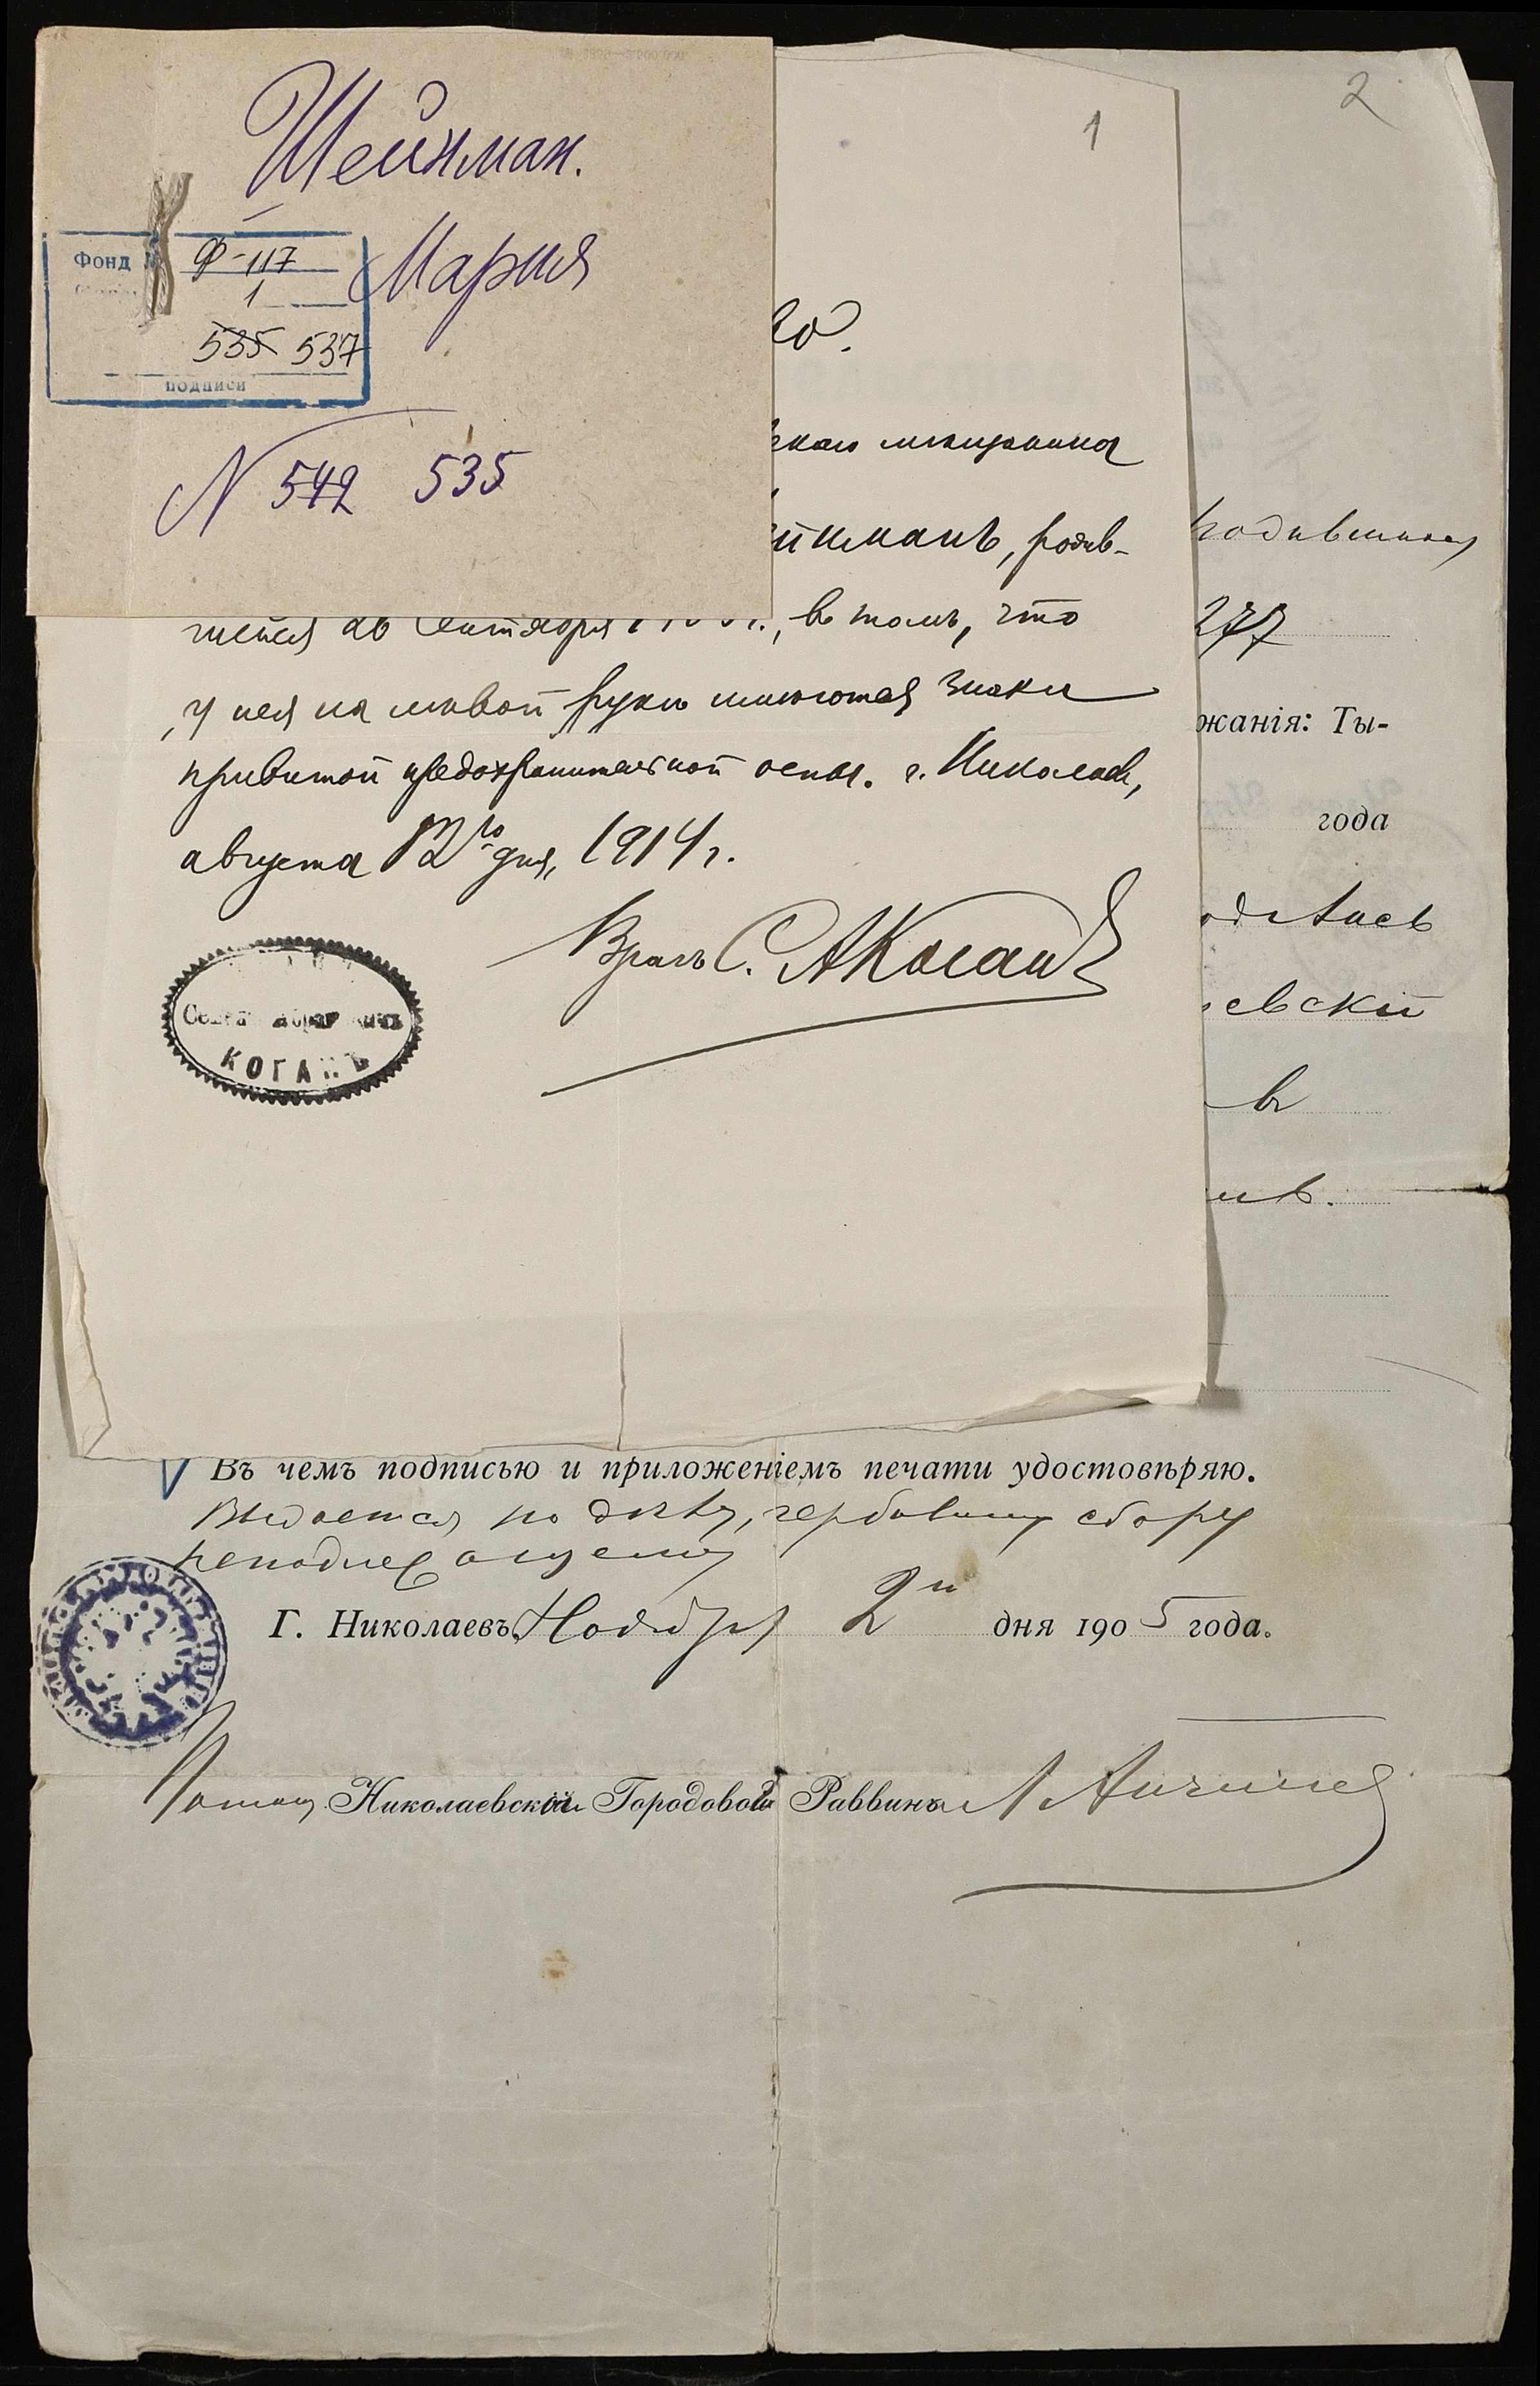 Шейнман.
Мария
Фонд № Ф-117
1
535 537
подписи
N 542 535
1
2
мѣщанина
йнманъ, родив-
шейся 26 Сентября, въ томъ, что
у нея на лѣвой рукѣ имѣются знаки
привитой предохранительной оспы. г. Николаевъ,
августа 12го дня, 1914 г.
Врачъ С. А Коганъ
КОГАНЪ
родившихся
277
жанія: Ты-
года
евскій
въ
Въ чемъ подписью и приложеніемъ печати удостовѣряю.
Выдается по дѣлу, гербовому сбору
неподлежащему
Г. Николаевъ, Ноября 2го дня 1905 года.
Николаевскій Городовой Раввинъ